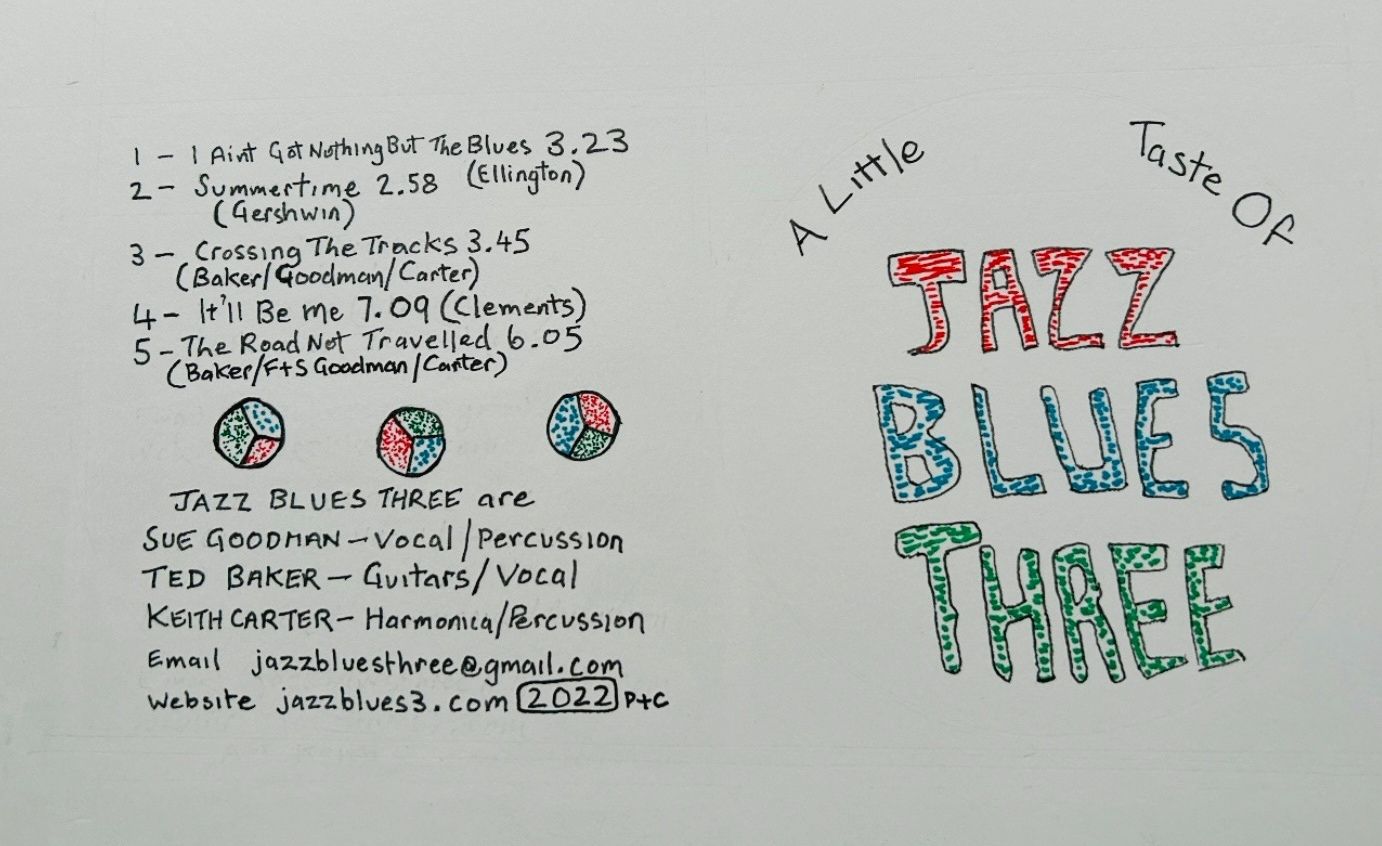 1 - I Aint Got Nothing But The Blues 3.23
2 - Summertime 2.58 (Ellington)
(Gershwin)
3 - Crossing The Tracks 3.45
(Baker/Goodman/Carter)
4 - It'll Be Me 7.09 (Clements)
5 - The Road Not Travelled 6.05
(Baker/F+S Goodman/Carter)
JAZZ BLUES THREE are
SUE GOODMAN - Vocal/Percussion
TED BAKER - Guitars/Vocal
KEITH CARTER - Harmonica/Percussion
Email jazzbluesthree@gmail.com
Website jazzblues3.com 2022 P+C
A Little Taste Of
JAZZ
BLUES
THREE